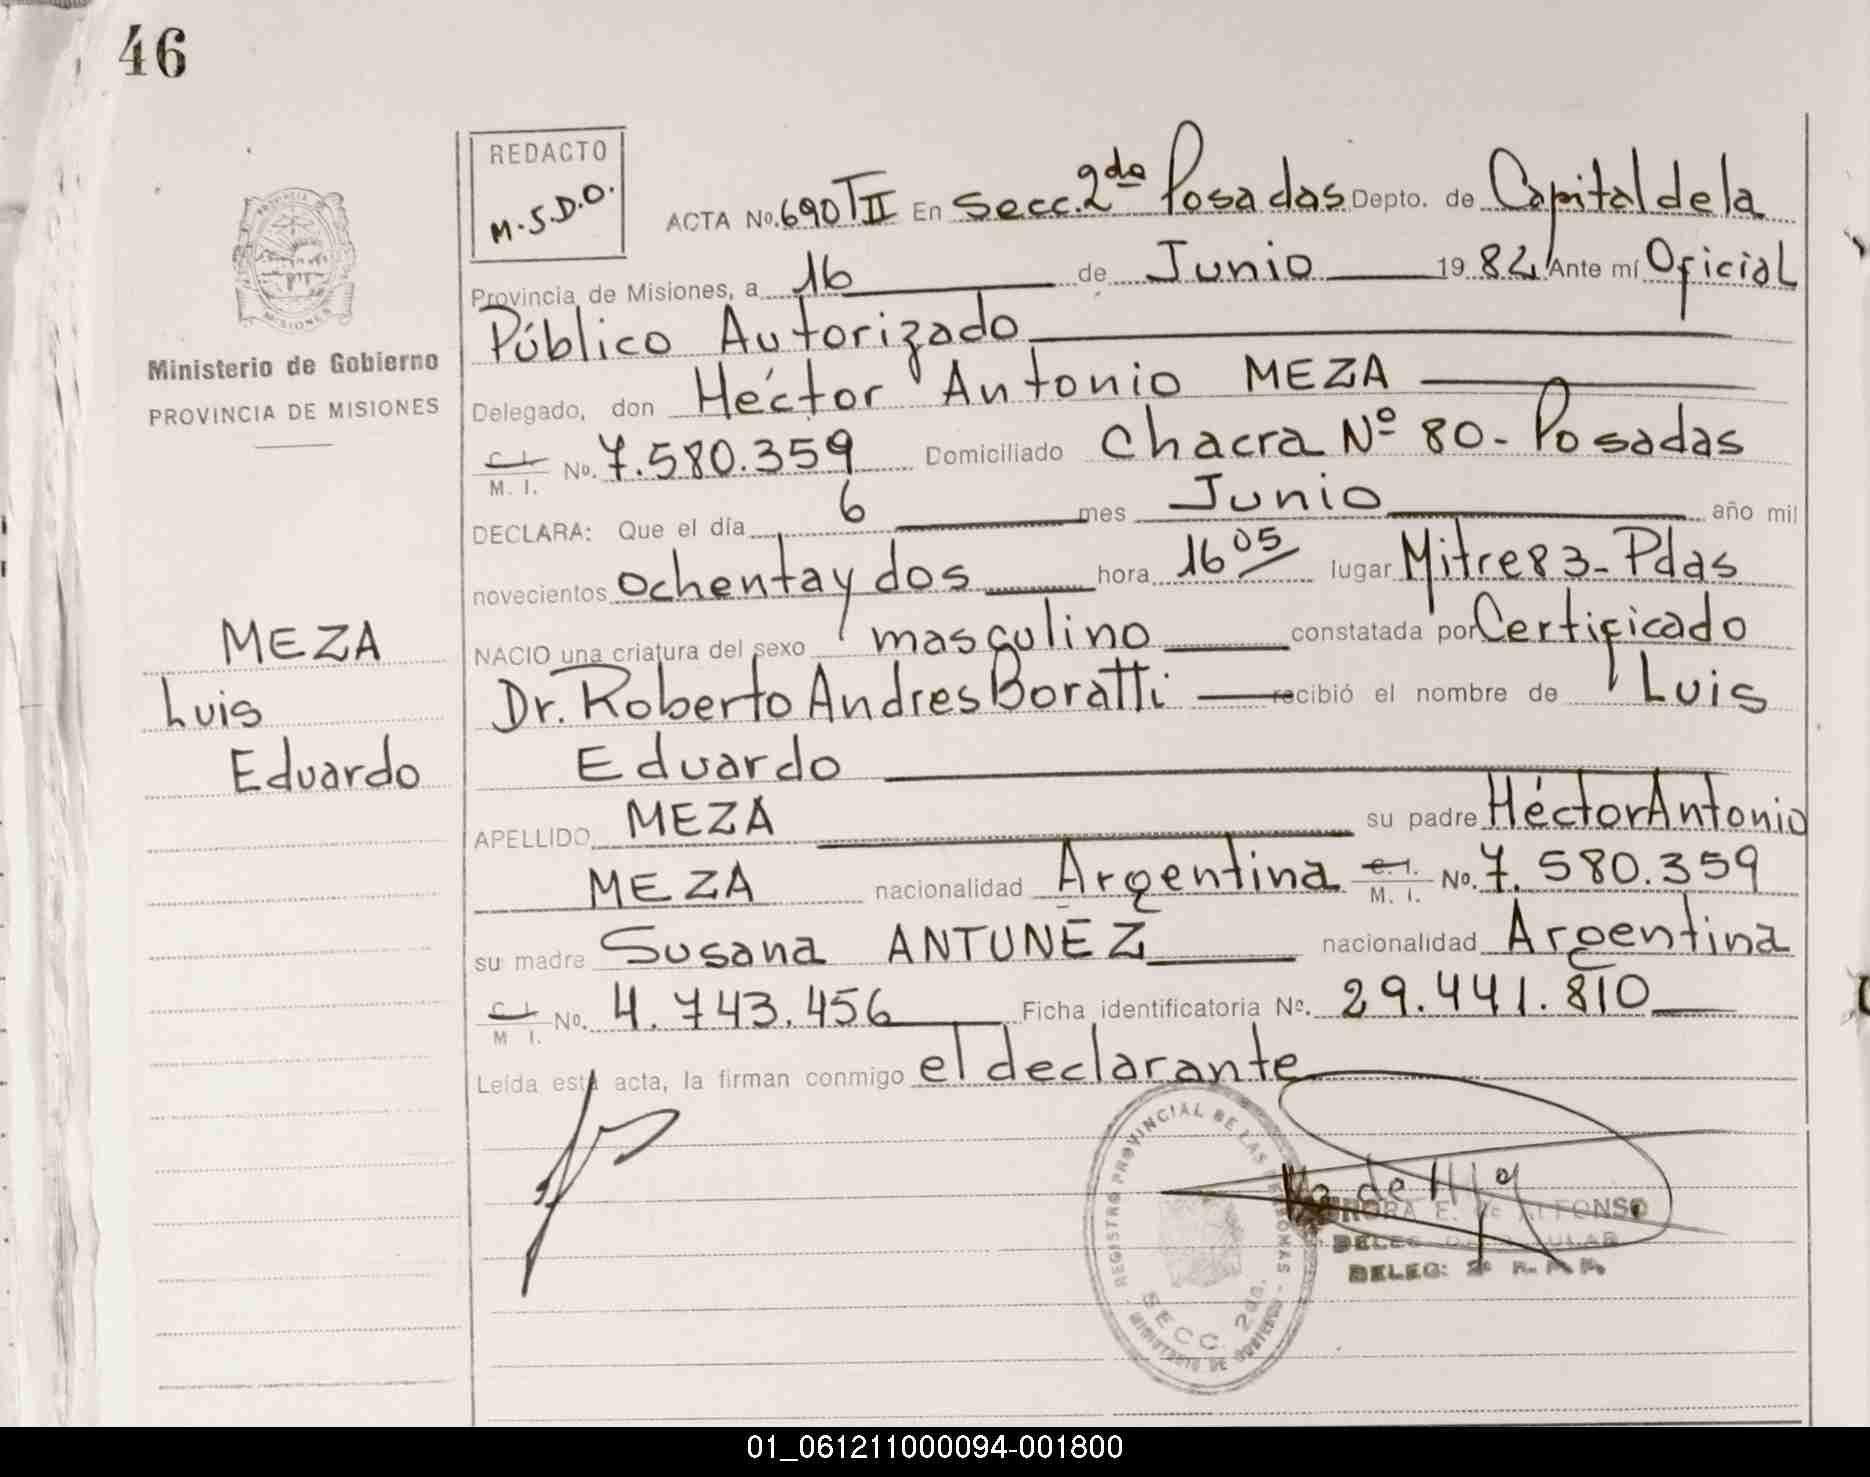 46
REDACTO
M.S.D.O.
ACTA No. 690 TII En Secc. 2da Posadas Depto. de Capital de la
Provincia de Misiones, a 16 de Junio 1982 Ante mí Oficial
Público Autorizado
Delegado, don Héctor Antonio MEZA
C. I. / M. I. No. 7.580.359 Domiciliado Chacra Nº 80 - Posadas
DECLARA: Que el día 6 mes Junio año mil
novecientos ochenta y dos hora 16 05 lugar Mitre 83 - Pdas
NACIO una criatura del sexo masculino constatada por Certificado
Dr. Roberto Andres Boratti recibió el nombre de Luis
Eduardo
APELLIDO MEZA su padre Héctor Antonio
MEZA nacionalidad Argentina C. I. / M. I. No. 7.580.359
su madre Susana ANTUNEZ nacionalidad Argentina
C. I. / M. I. No. 4.743.456 Ficha identificatoria No. 29.441.810
Leída esta acta, la firman conmigo el declarante
PROVINCIA
MISIONES
Ministerio de Gobierno
PROVINCIA DE MISIONES
MEZA
Luis
Eduardo
REGISTRO PROVINCIAL DE LAS PERSONAS
SECC. 2da.
MINISTERIO DE GOBIERNO
E. de ALFONSO
DELEG:
01_061211000094-001800